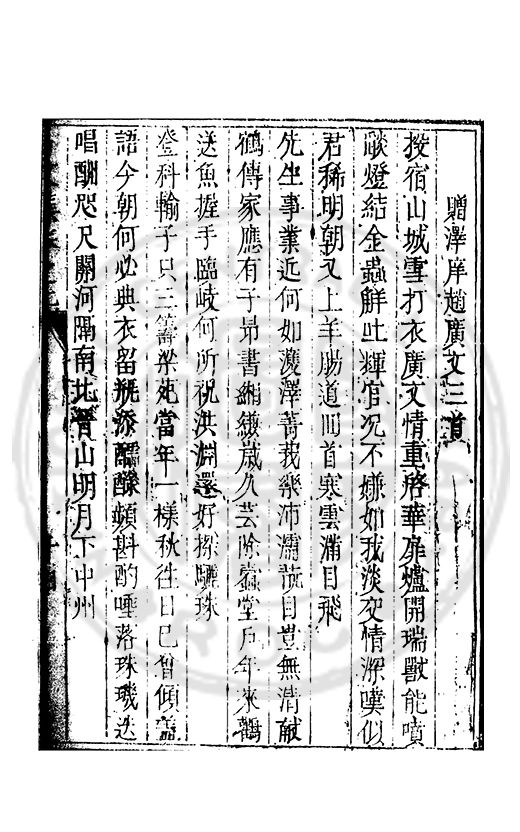 贈澤庠趙廣文三首
投宿山城雪打衣廣文情重啓華扉爐開瑞獸能噴
燄燈結金蟲鮮吐輝官况不嫌如我淡交情深嘆似
君稀明朝又上羊腸道回首寒雲滿目飛
先生事業近何如濩澤菁莪樂沛濡苜目豈無清獻
鶴傳家應有子昂書緗縹歲久芸除蠹堂戶年來鸛
送魚握手臨岐何所祝洪淵還好探驪珠
登科輸子只三籌梁苑當年一樣秋往日已曾傾蓋
語今朝何必典衣留瓶添醽醁頻斟酌唾落珠璣迭
唱酬咫尺關河隔南北晉山明月下中州